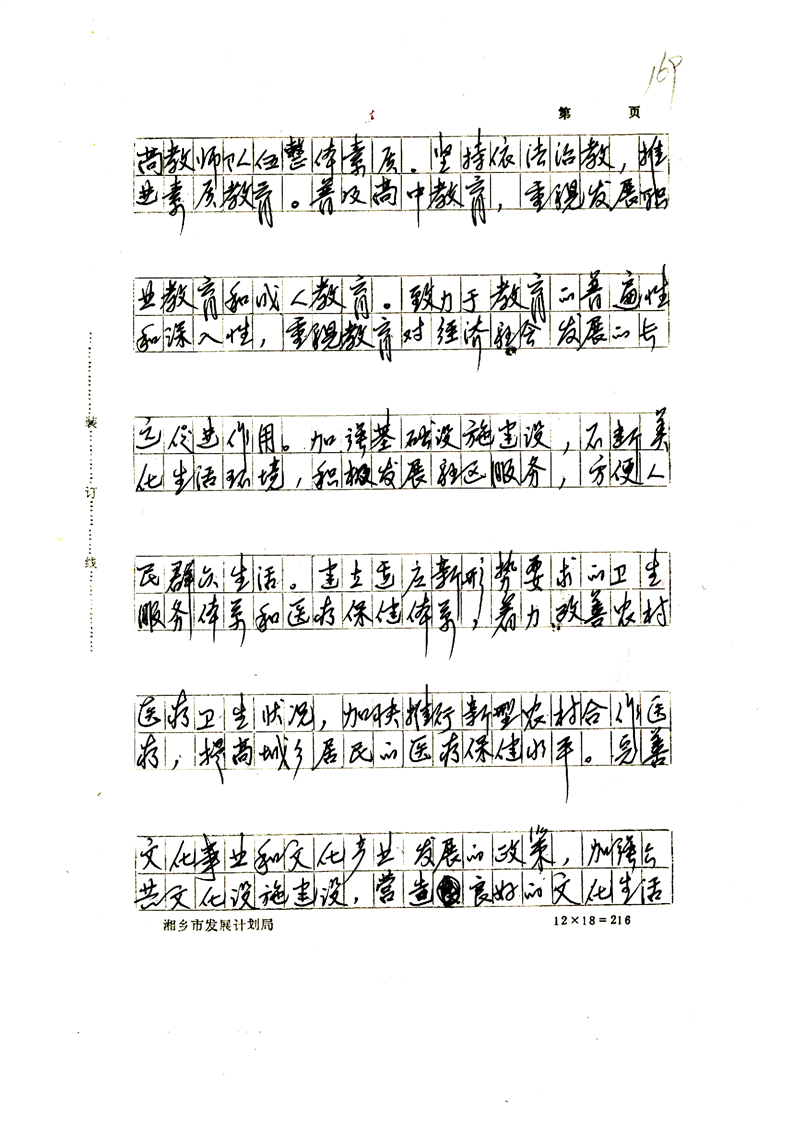 169
第 页
高教师队伍整体素质．坚持依法治教，推
进素质教育。普及高中教育，重视发展职
业教育和成人教育。致力于教育的普遍性
和深入性，重视教育对经济社会发展的长
远促进作用。加强基础设施建设，不断美
化生活环境，积极发展社区服务，方便人
民群众生活。建立适应新形势要求的卫生
服务体系和医疗保健体系，着力改善农村
医疗卫生状况，加快推行新型农村合作医
疗，提高城乡居民的医疗保健水平。完善
文化事业和文化产业发展的政策，加强公
共文化设施建设，营造良好的文化生活
湘乡市发展计划局
12×18=216
装
订
线